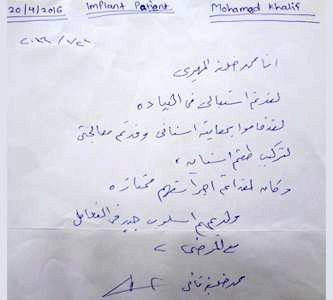 20/4/2016 Implant Patient Mohamed Khalif
انا محمد خليفة المهيري
لقد تم استقبالي في العياده
لقد قاموا بمعاينة اسناني وقد تم معالجتي
لتركيب طقم اسنان
وكان لقد تم اجراءتهم ممتازه
ولديهم اسلوب جيد في التعامل
مع المرضى
محمد خليفة